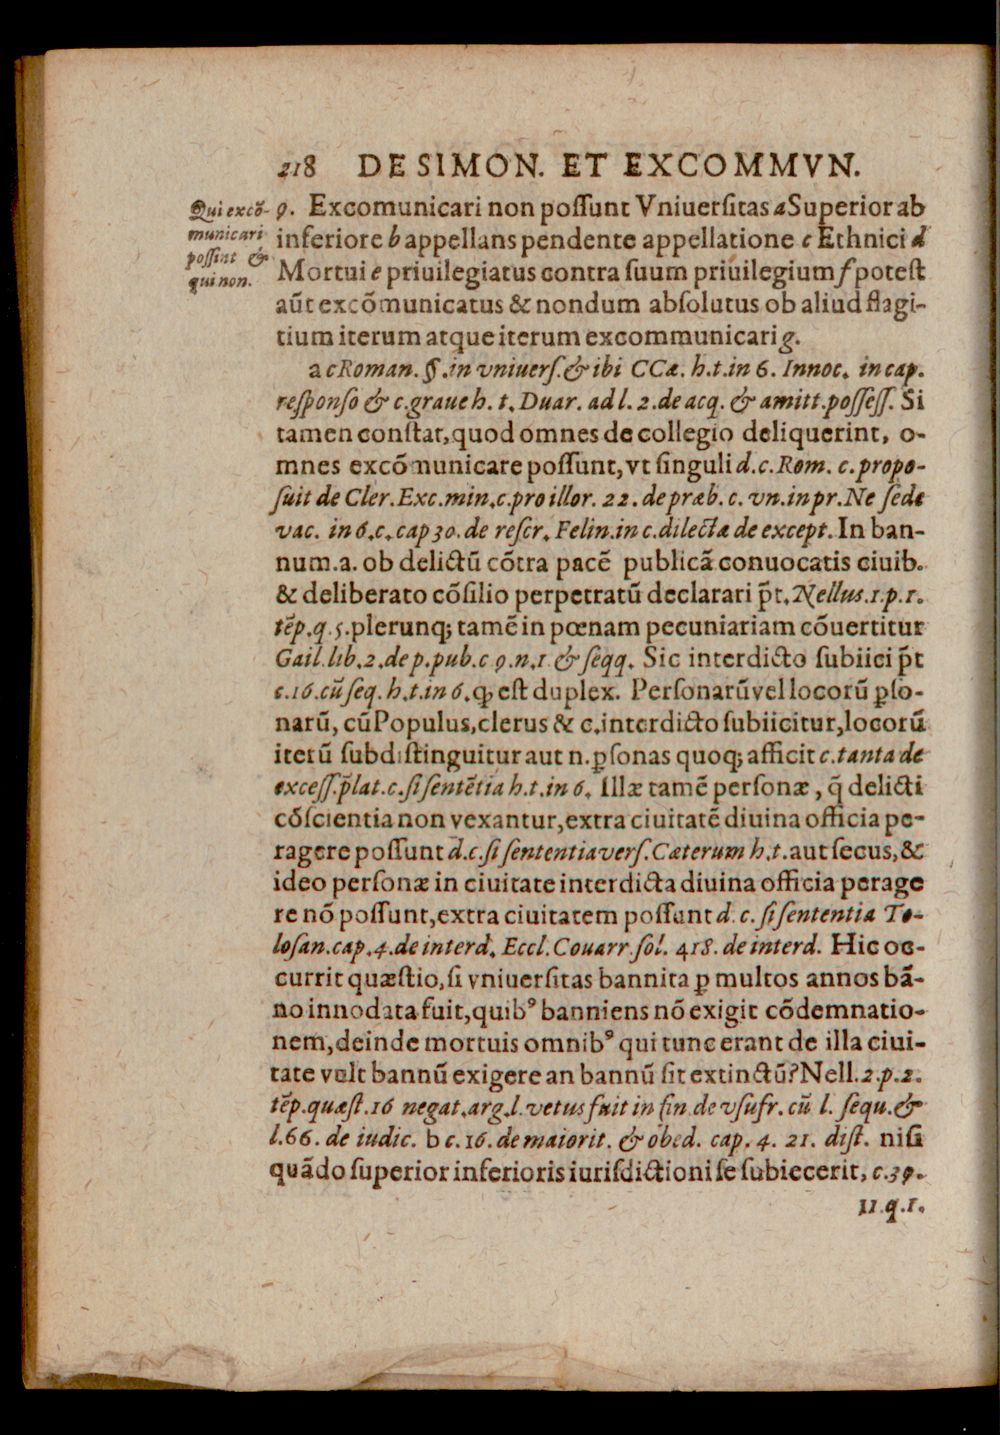 218 DE SIMON. ET EXCOMMVN.
Qui excõ-
municari
possint &
qui non.
9. Excomunicari non poſſunt Vniuerſitas a Superior ab
inferiore b appellans pendente appellatione c Ethnici d
Mortui e priuilegiatus contra ſuum priuilegium f poteſt
aũt excõmunicatus & nondum abſolutus ob aliud flagi-
tium iterum atque iterum excommunicari g.
a c Roman. §. in vniuerſ. & ibi CCæ. h. t. in 6. Innoc. in cap.
reſponſo & c. graue h. t. Duar. ad l. 2. de acq. & amitt. poſſeſſ. Si
tamen conſtat, quod omnes de collegio deliquerint, o-
mnes excõmunicare poſſunt, vt ſinguli d. c. Rom. c. propo-
ſuit de Cler. Exc. min. c. pro illor. 22. de præb. c. vn. in pr. Ne ſede
vac. in 6. c. cap 30. de reſcr. Felin. in c. dilecta de except. In ban-
num. a. ob delictũ cõtra pacẽ publicã conuocatis ciuib.
& deliberato cõſilio perpetratũ declarari p̃t. Nellus. 1. p. 1.
tẽp. q. 5. plerunq; tamẽ in pœnam pecuniariam cõuertitur
Gail. lib. 2. de p. pub. c 9. n. 1 & ſeqq. Sic interdicto ſubiici p̃t
c. 16. cũ ſeq. h. t. in 6. ꝙ eſt duplex. Perſonarũ vel locorũ ꝑſo-
narũ, cũ Populus, clerus & c. interdicto ſubiicitur, locorũ
iterũ ſubdiſtinguitur aut n. ꝑſonas quoq; afficit c. tanta de
exceſſ. p̃lat. c. ſi ſentẽtia h. t. in 6. Illæ tamẽ perſonæ, q̃ delicti
cõſcientia non vexantur, extra ciuitatẽ diuina officia pe-
ragere poſſunt d. c. ſi ſententia verſ. Cæterum h. t. aut ſecus, &
ideo perſonæ in ciuitate interdicta diuina officia perage
re nõ poſſunt, extra ciuitatem poſſunt d. c. ſi ſententia To-
loſan. cap. 4. de interd. Eccl. Couarr. fol. 418. de interd. Hic oc-
currit quæſtio, ſi vniuerſitas bannita ꝑ multos annos bã-
no innodata fuit, quibꝰ banniens nõ exigit cõdemnatio-
nem, deinde mortuis omnibꝰ qui tunc erant de illa ciui-
tate vult bannũ exigere an bannũ ſit extinctũ? Nell. 2. p. 2.
tẽp. quæſt. 16 negat. arg. l. vetus fuit in fin. de vſufr. cũ l. ſequ. &
l. 66. de iudic. b c. 16. de maiorit. & obed. cap. 4. 21. diſt. niſi
quãdo ſuperior inferioris iuriſdictioni ſe ſubiecerit, c. 39.
11. q. 1.